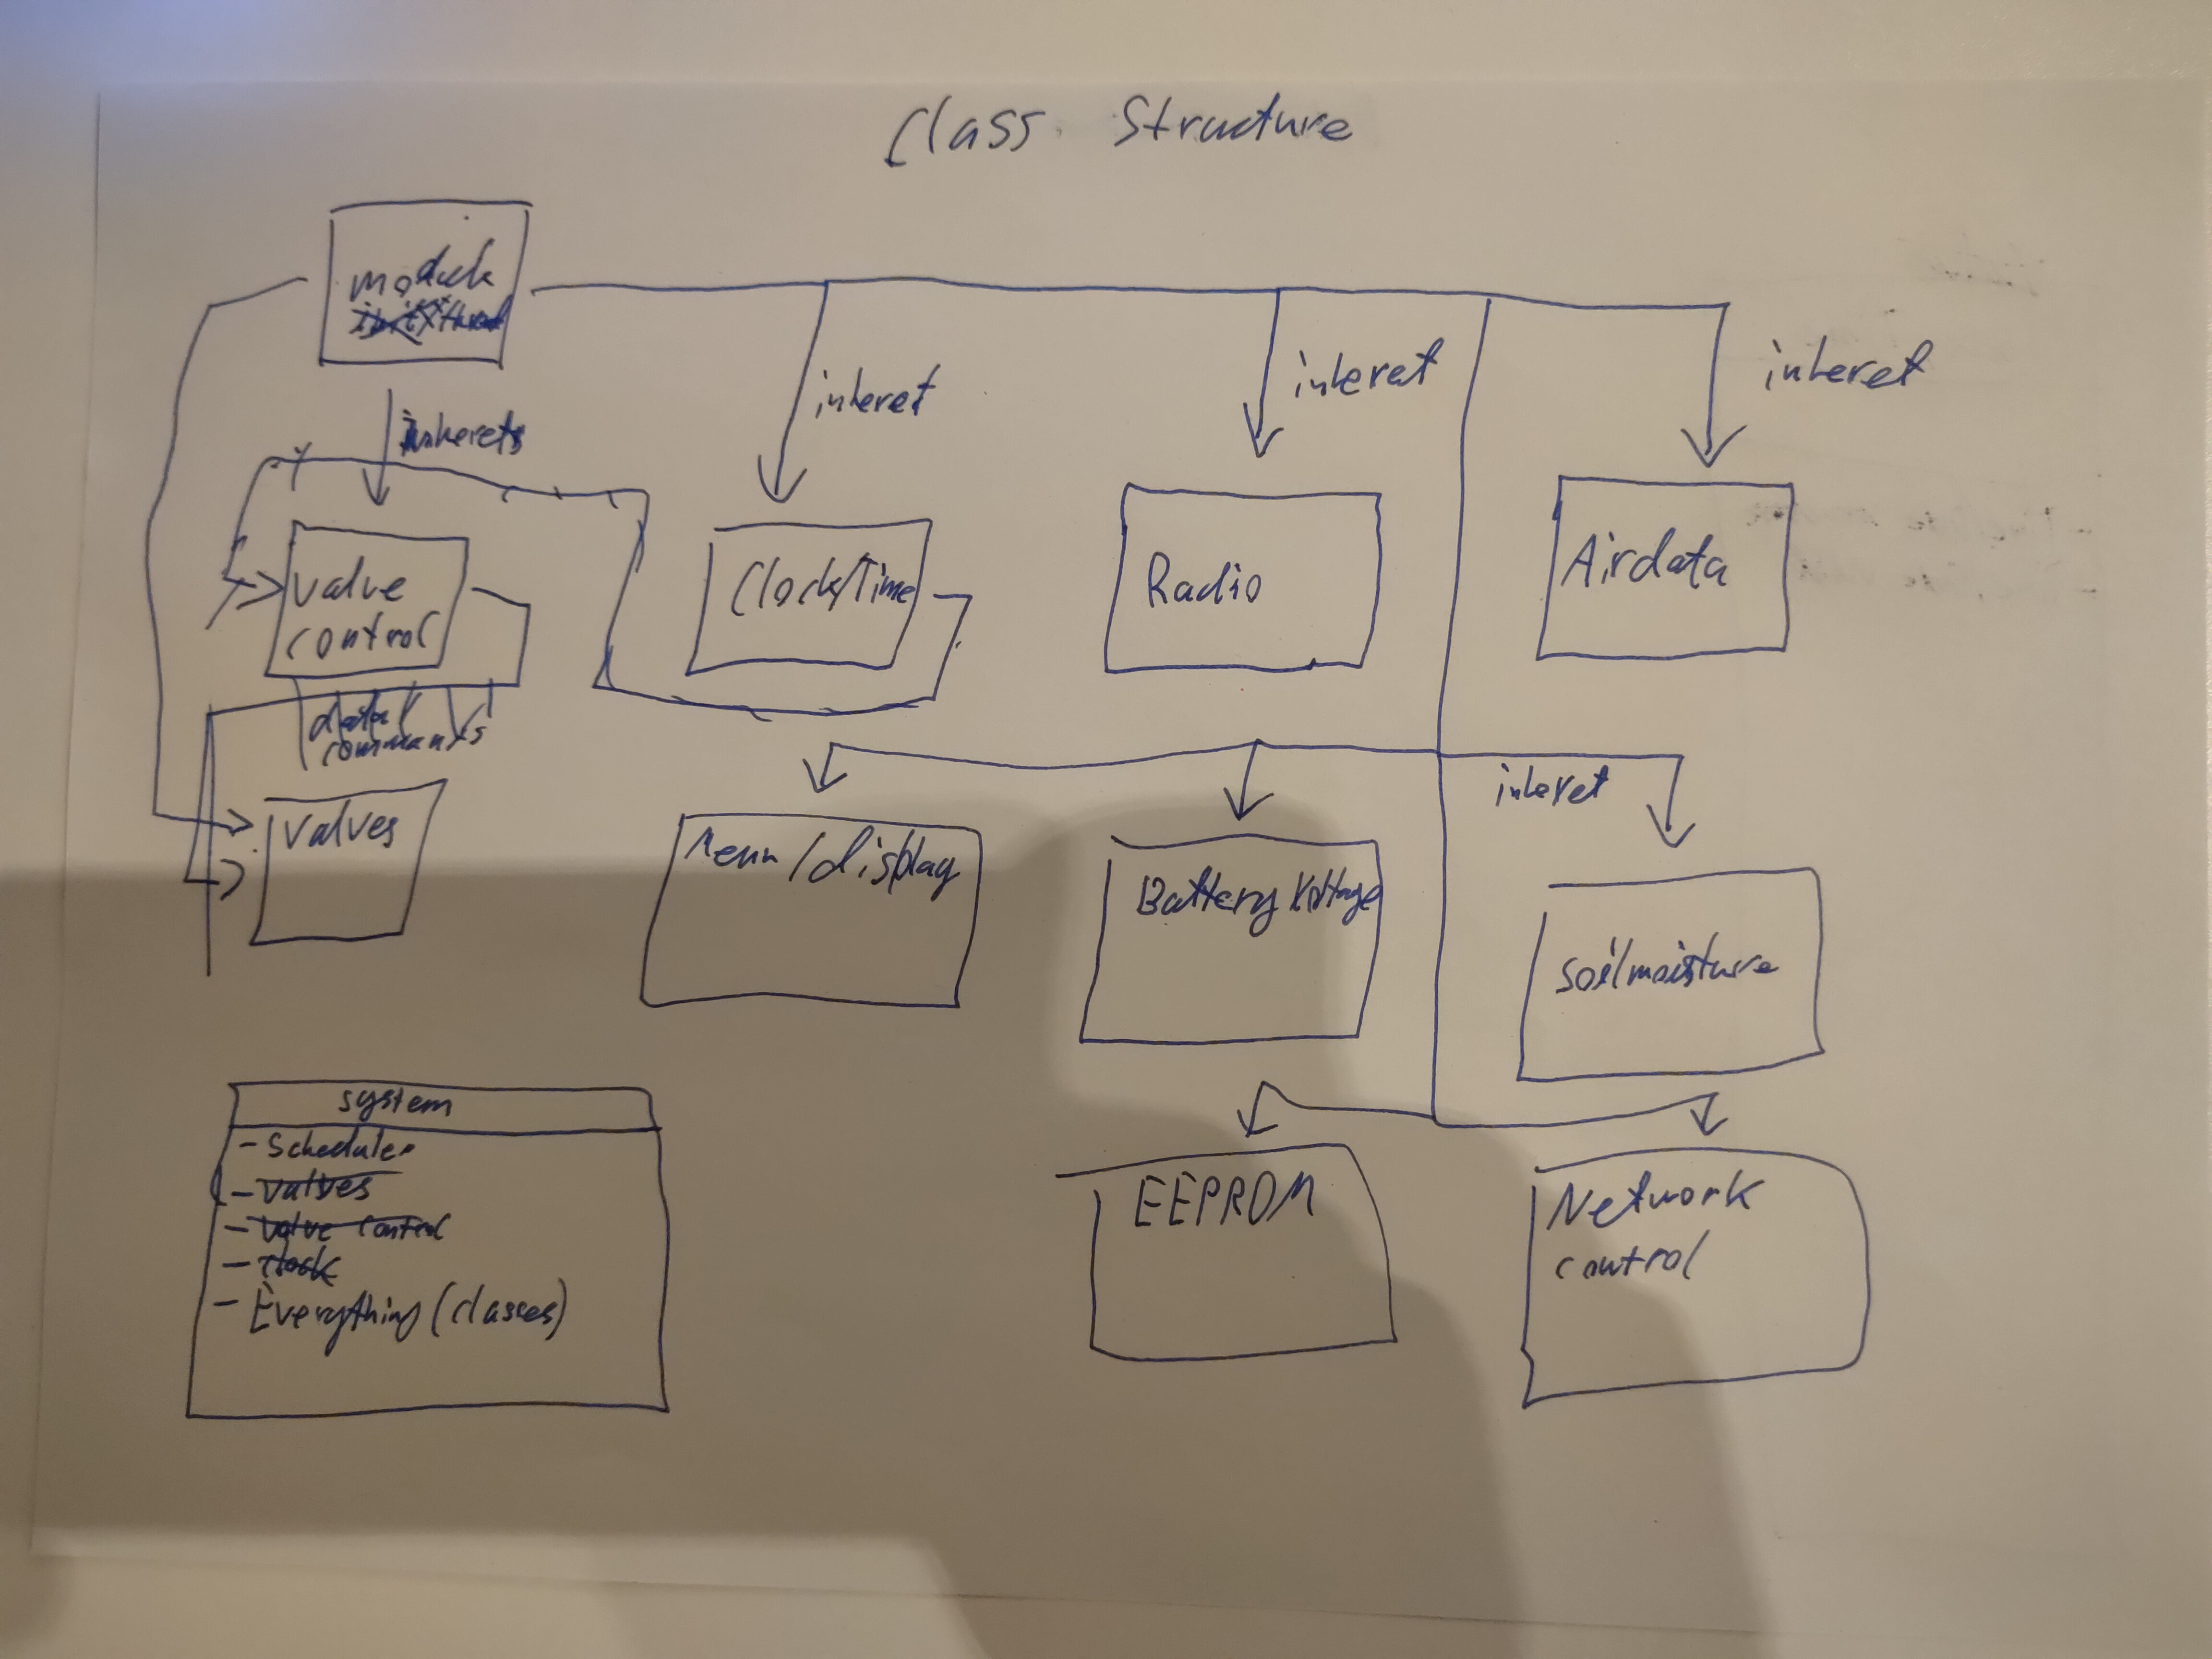 Class Structure
module
inherets
inheret
inheret
inheret
valve
control
Clock/Time
Radio
Airdata
data/
commands
valves
Menu/display
Battery Voltage
inheret
soilmoisture
system
- Scheduler
- valves
- valve control
- clock
- Everything (classes)
EEPROM
Network
control